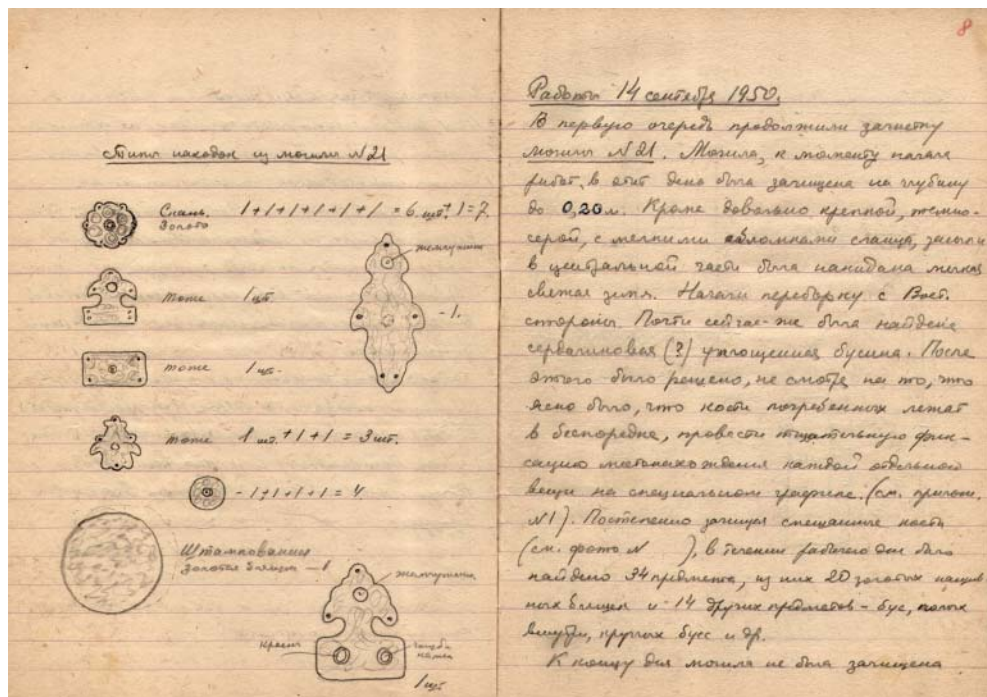 Типы находок из могилы N 21
Скань. 1+1+1+1+1+1 = 6 шт + 1 = 7.
Золото
жемчужина
- 1.
тоже 1 шт.
тоже 1 шт.
тоже 1 шт. + 1 + 1 = 3 шт.
- 1+1+1+1 = 4
Штампованная
золотая бляшка — 1
жемчужина
камень
1 шт
8
Работы 14 сентября 1950.
В первую очередь продолжили зачистку
могилы N 21. Могила, к моменту начала
работ, в этот день была зачищена на глубину
до 0,20 м. Кроме довольно крепкой, темно-
серой, с мелкими обломками сланца, засыпи
в центральной части была накидана мягкая
свежая земля. Начали переборку с Вост.
стороны. Почти сейчас-же была найдена
сердоликовая (?) уплощенная бусина. После
этого было решено, не смотря на то, что
ясно было, что кости погребенных лежат
в беспорядке, провести тщательную фик-
сацию местонахождения каждой отдельной
вещи на специальном графике. (см. прилож.
N1). Постепенно зачищая смещанные кости
(см. фото N ), в течении рабочего дня было
найдено 34 предмета, из них 20 золотых нашив-
ных бляшек и 14 других предметов - бус, полых
внутри, круглых бусс и др.
К концу дня могила не была зачищена